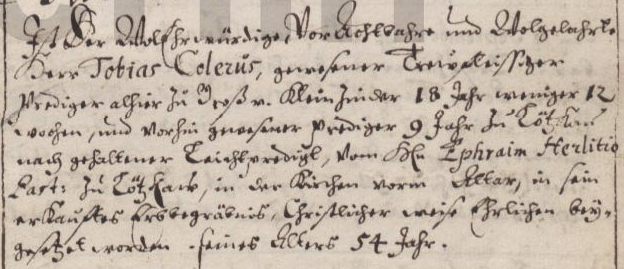 Ist Der WolEhrwürdige, VorAchtbahre und Wolgelahrte
Herr Tobias Colerus, gewesener Trewfleissiger
Prediger alhier zu Groß u. Klein 18 Jahr weniger 12
wochen, und vorhin gewesener Prediger 9 Jahr zu
nach gehaltener Leichpredigt, vom Hn Ephraim Herlitio
Past: zu in der Kirchen vorm Altar, in sein
erkaufftes Erbbegräbnis, Christlicher weise Ehrlichen bey-
gesetzet worden. seines Alters 54 Jahr.